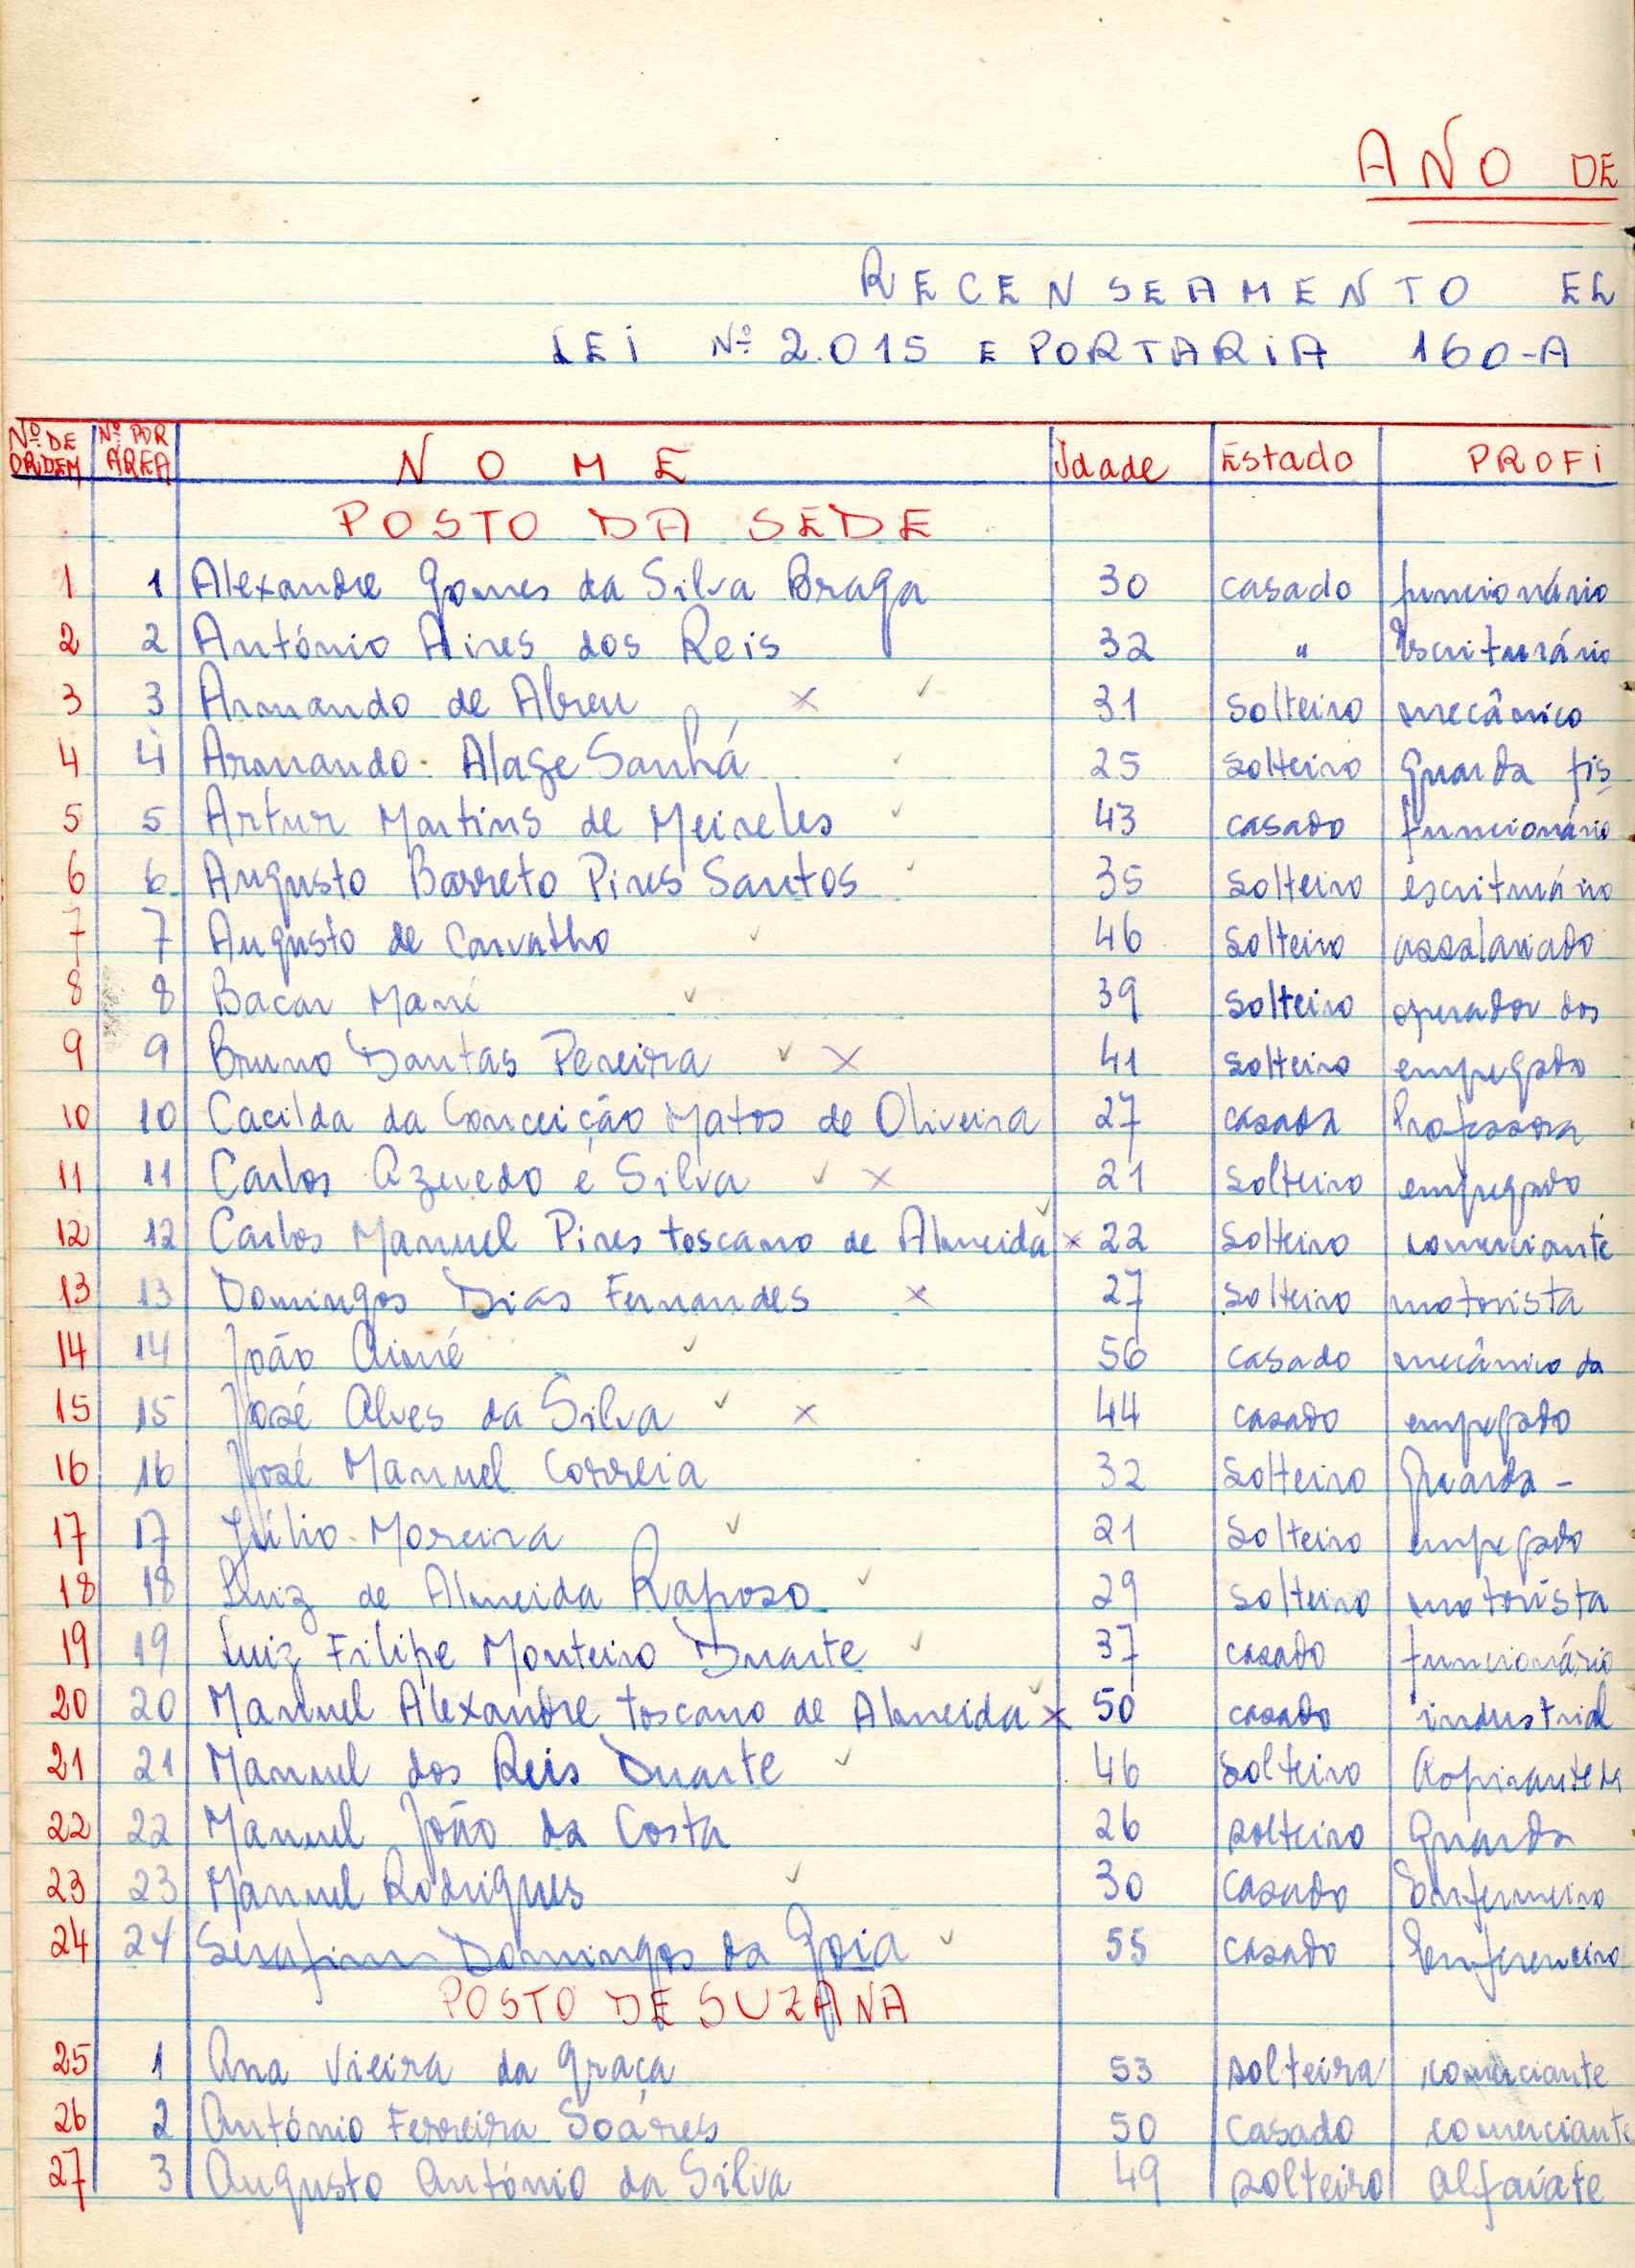 AÑO DE
RECENSEAMENTO EL
LEI Nº 2.015 E PORTARIA 160-A
Nº DE ORDEM Nº POR ÁREA NOME Idade Estado PROFI
POSTO DA SEDE
1 1 Alexandre Gomes da Silva Braga 30 casado funcionário
2 2 António Aires dos Reis 32 " Escriturário
3 3 Armando de Abreu x ✓ 31 Solteiro mecânico
4 4 Armando Alage Sanhá ✓ 25 Solteiro Guarda fis
5 5 Artur Martins de Meireles ✓ 43 casado funcionário
6 6 Augusto Barreto Pires Santos ✓ 35 Solteiro escriturário
7 7 Augusto de Carvalho ✓ 46 Solteiro assalariado
8 8 Bacar Mané ✓ 39 Solteiro operador dos
9 9 Bruno Dantas Pereira ✓ x 41 Solteiro empregado
10 10 Cacilda da Conceição Matos de Oliveira 27 casada Professora
11 11 Carlos Azevedo e Silva ✓ x 21 Solteiro empregado
12 12 Carlos Manuel Pires toscano de Almeida ✓ x 22 Solteiro comerciante
13 13 Domingos Dias Fernandes x 27 Solteiro motorista
14 14 João ✓ 56 casado mecânico da
15 15 José Alves da Silva ✓ x 44 casado empregado
16 16 José Manuel Correia 32 Solteiro Guarda -
17 17 Júlio Moreira ✓ 21 Solteiro empregado
18 18 Luiz de Almeida Raposo ✓ 29 Solteiro motorista
19 19 Luiz Filipe Monteiro Duarte ✓ 37 casado funcionário
20 20 Manuel Alexandre toscano de Almeida ✓ x 50 casado industrial
21 21 Manuel dos Reis Duarte ✓ 46 Solteiro Aspirante
22 22 Manuel João da Costa 26 solteiro Guarda
23 23 Manuel Rodrigues ✓ 30 casado Enfermeiro
24 24 Serafim Domingos da Goia ✓ 55 casado Enfermeiro
POSTO DE SUZANA
25 1 Ana Vieira da Graça 53 solteira comerciante
26 2 António Ferreira Soáres 50 Casado comerciante
27 3 Augusto António da Silva 49 solteiro alfaiate